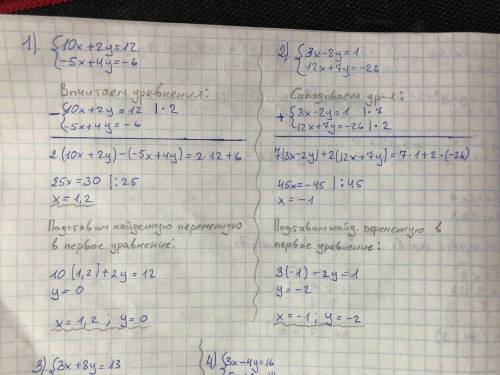 1). {10x+2y=12
{-5x+4y=-6
Впчитаем уравнения:
- {10x+2y=12 |·2
{-5x+4y=-6
2(10x+2y)-(-5x+4y)=2·12+6
25x=30 |:25
x=1,2
Подставим найденную переменную
в первое уравнение:
10(1,2)+2y=12
y=0
x=1,2; y=0
3) {2x+8y=13
2) {3x-2y=1
{12x+7y=-26
Складываем ур-я:
+ {3x-2y=1 |·7
{12x+7y=-26 |·2
7(3x-2y)+2(12x+7y)=7·1+2·(-26)
45x=-45 |:45
x=-1
Подставим найд. переменную в
первое уравнение:
3(-1)-2y=1
y=-2
x=-1; y=-2
4) {3x-4y=16